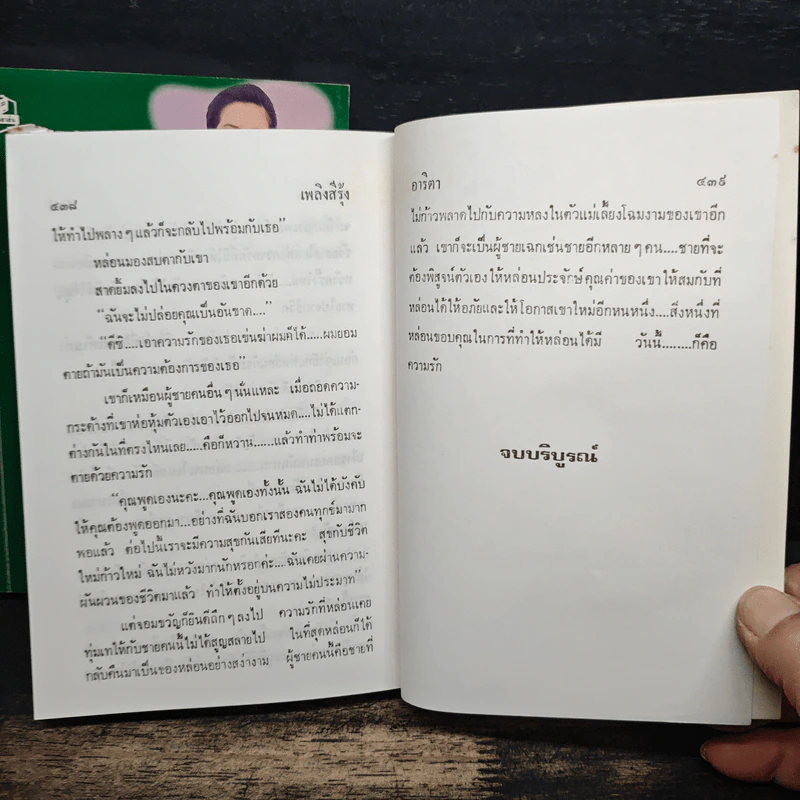 ๔๓๘ เพลิงสีรุ้ง
ให้ทำไปพลาง ๆ แล้วก็จะกลับไปพร้อมกับเธอ”
หล่อนมองสบตากับเขา
สาดยิ้มลงไปในดวงตาของเขาอีกด้วย
“ฉันจะไม่ปล่อยคุณเป็นอันขาด....”
“ดีซี....เอาความรักของเธอเข่นฆ่าผมก็ได้.....ผมยอม
ตายถ้ามันเป็นความต้องการของเธอ”
เขาก็เหมือนผู้ชายคนอื่น ๆ นั่นแหละ เมื่อถอดความ-
กระด้างที่เขาห่อหุ้มตัวเองเอาไว้ออกไปจนหมด....ไม่ได้แตก-
ต่างกันในที่ตรงไหนเลย....คือก็หวาน......แล้วทำท่าพร้อมจะ
ตายด้วยความรัก
“คุณพูดเองนะคะ...คุณพูดเองทั้งนั้น ฉันไม่ได้บังคับ
ให้คุณต้องพูดออกมา...อย่างที่ฉันบอกเราสองคนทุกข์มามาก
พอแล้ว ต่อไปนี้เราจะมีความสุขกันเสียทีนะคะ สุขกับชีวิต
ใหม่ก้าวใหม่ ฉันไม่หวังมากนักหรอกค่ะ....ฉันเคยผ่านความ-
ผันผวนของชีวิตมาแล้ว ทำให้ตั้งอยู่บนความไม่ประมาท”
แต่จอมขวัญก็ยินดีลึก ๆ ลงไป ความรักที่หล่อนเคย
ทุ่มเทให้กับชายคนนี้ไม่ได้สูญสลายไป ในที่สุดหล่อนก็ได้
กลับคืนมาเป็นของหล่อนอย่างสง่างาม ผู้ชายคนนี้คือชายที่
อาริตา ๔๓๙
ไม่ก้าวพลาดไปกับความหลงในตัวแม่เลี้ยงโฉมงามของเขาอีก
แล้ว เขาก็จะเป็นผู้ชายเฉกเช่นชายอีกหลาย ๆ คน....ชายที่จะ
ต้องพิสูจน์ตัวเองให้หล่อนประจักษ์คุณค่าของเขาให้สมกับที่
หล่อนได้ให้อภัยและให้โอกาสเขาใหม่อีกหนหนึ่ง....สิ่งหนึ่งที่
หล่อนขอบคุณในการที่ทำให้หล่อนได้มี วันนี้........ก็คือ
ความรัก
จบบริบูรณ์